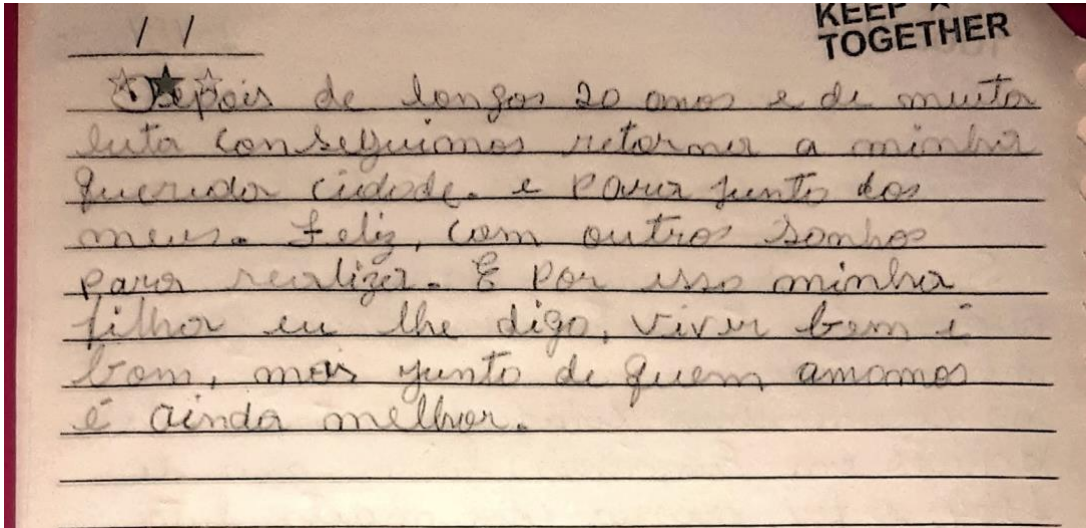 KEEP
TOGETHER
/ /
Depois de longos 20 anos e de muita
luta conseguimos retorna a minha
querida cidade. e para junto dos
meus. Feliz, com outros sonhos
para realiza. E por isso minha
filha eu lhe digo, viver bem é
bom, mais junto de quem amamos
é ainda melhor.